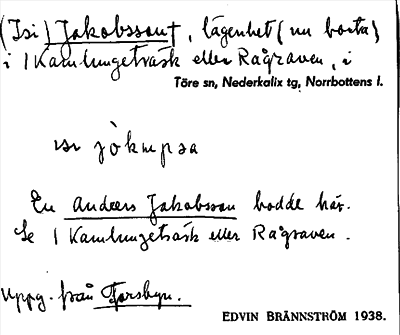 (Isi) Jakobsson†, lägenhet (nu borta)
i 1 Kamlungeträsk eller Rågraven, i
Töre sn, Nederkalix tg, Norrbottens l.
ısı jòkmpsa
En Anders Jakobsson bodde här.
Se 1 Kamlungeträsk eller Rågraven.
Uppg. från Forsbyn.
EDVIN BRÄNNSTRÖM 1938.